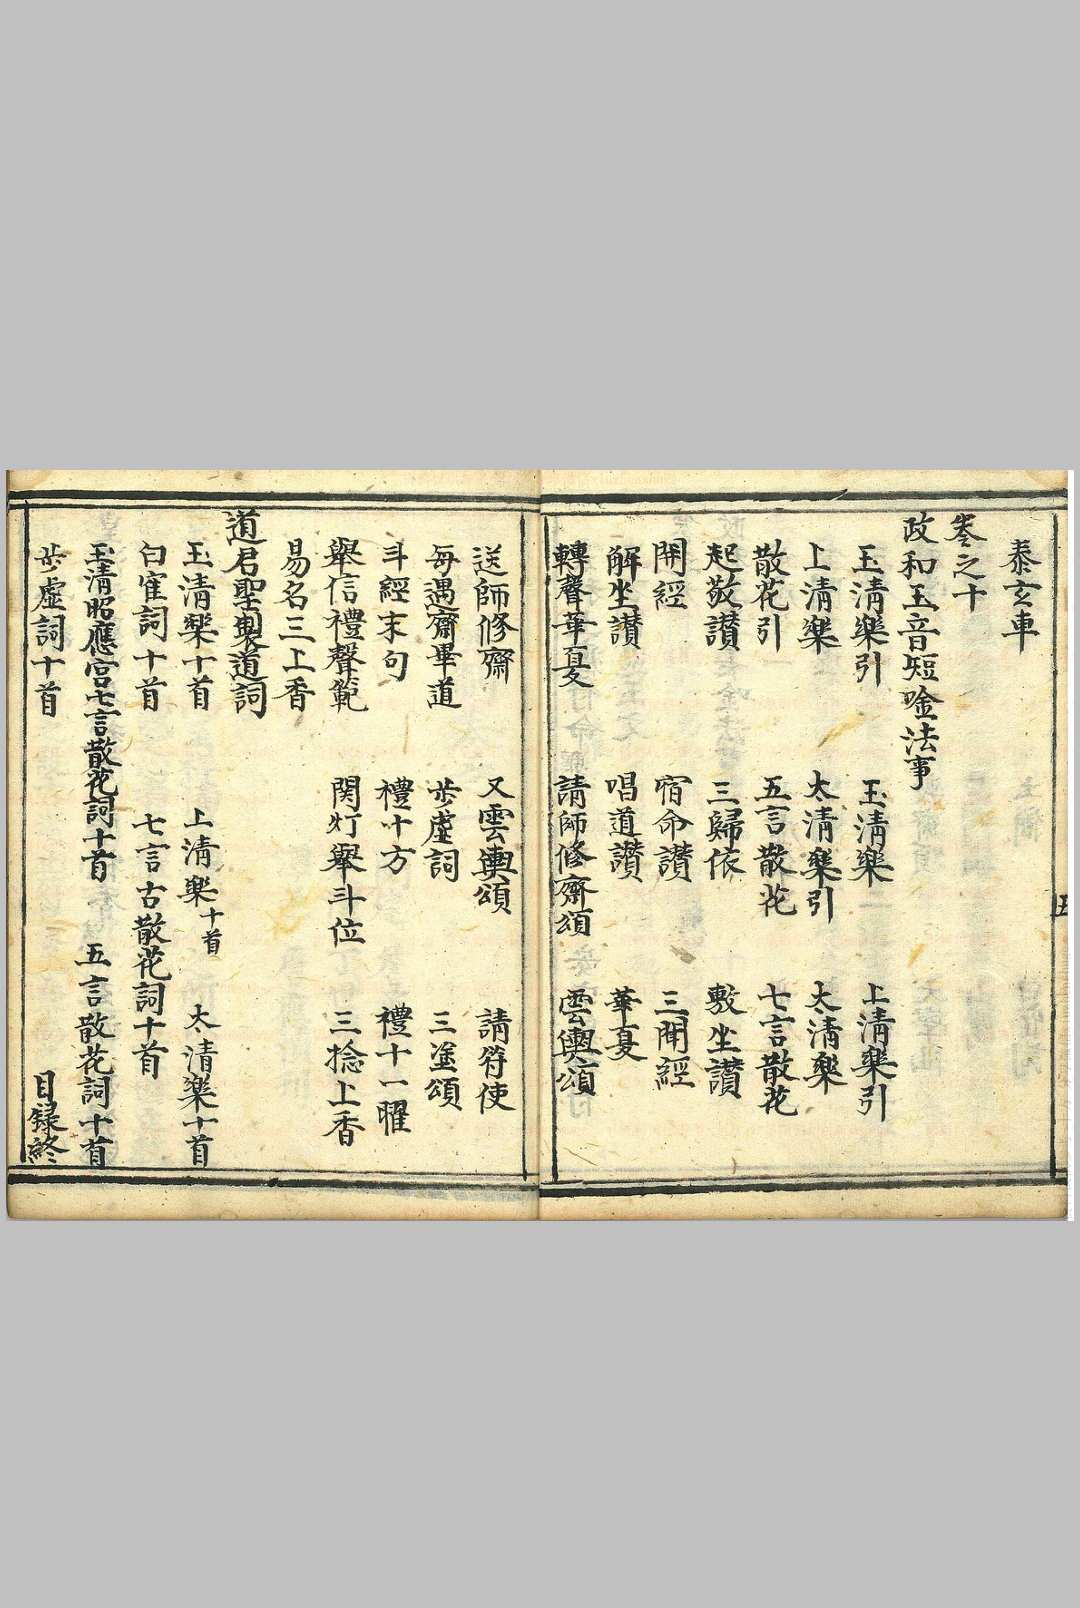 泰玄車
卷之十
政和玉音短唫法事
玉清樂引 玉清樂 上清樂引
上清樂 太清樂引 太清樂
散花引 五言散花 七言散花
起敬讃 三歸依 敷坐讃
開經 宿命讃 三聞經
解坐讃 唱道讃 華夏
轉聲華夏 請師修齋頌 雲輿頌
送師修齋 又雲輿頌 請符使
每遇齋畢道 步虛詞 三塗頌
斗經末句 禮十方 禮十一曜
舉信禮聲範 関灯舉斗位 三捻上香
易名三上香
道君聖製道詞
玉清樂十首 上清樂十首 太清樂十首
白寉詞十首 七言古散花詞十首
玉清昭應宮七言散花詞十首 五言散花詞十首
步虛詞十首 目録終
五